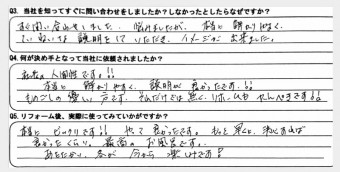 Q3. 当社を知ってすぐに問い合わせをしましたか？しなかったとしたらなぜですか？
すぐ問い合わせしました。悩みましたが、本当に 解り やすく、
ていねいな 説明をして いただき、イメージが 出来ました。
Q4. 何が決め手となって当社に依頼されましたか？
人間性です!!
本当に 解り やすく、説明が 良かったです!!
ものごしの優しい 方です。私だけでは 無く、
Q5. リフォーム後、実際に使ってみていかがですか？
本当に ビックリです!! やって 良かったです。もっと 早く
良かったくらい、最高の お風呂です。
あたたかい、冬が 今から 楽しみです!